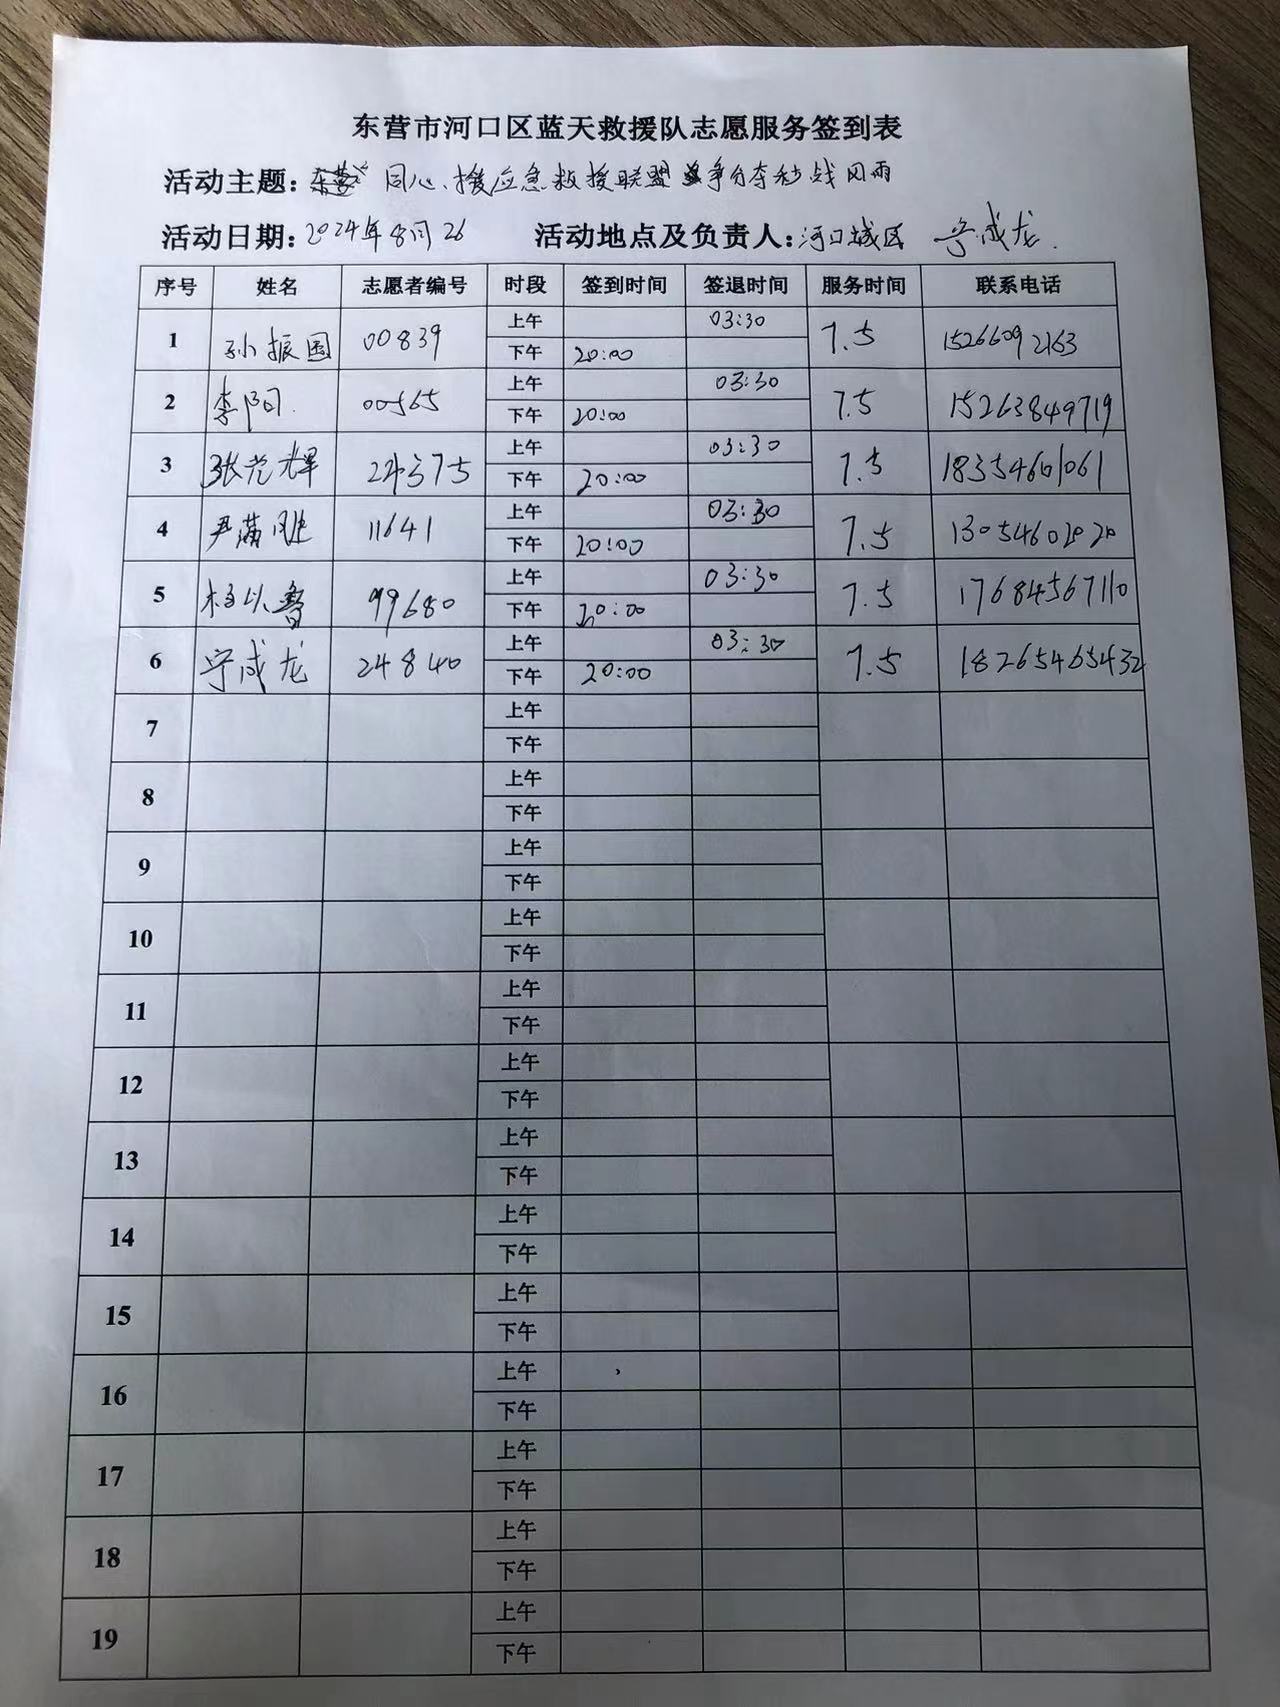 东营市河口区蓝天救援队志愿服务签到表
活动主题: 同心、援应急救援联盟 争分夺秒战风雨
活动日期: 2024年8月26 活动地点及负责人: 河口城区 宁成龙.
序号 姓名 志愿者编号 时段 签到时间 签退时间 服务时间 联系电话
1 孙振国 00839 上午 03:30 7.5 15266092163
下午 20:00
2 李阳 00565 上午 03:30 7.5 15263849719
下午 20:00
3 张光辉 24375 上午 03:30 7.5 18354601061
下午 20:00
4 尹 11641 上午 03:30 7.5 13054602020
下午 20:00
5 杨以鲁 99680 上午 03:30 7.5 17684567110
下午 20:00
6 宁成龙 24840 上午 03:30 7.5 18265465432
下午 20:00
7 上午
下午
8 上午
下午
9 上午
下午
10 上午
下午
11 上午
下午
12 上午
下午
13 上午
下午
14 上午
下午
15 上午
下午
16 上午
下午
17 上午
下午
18 上午
下午
19 上午
下午